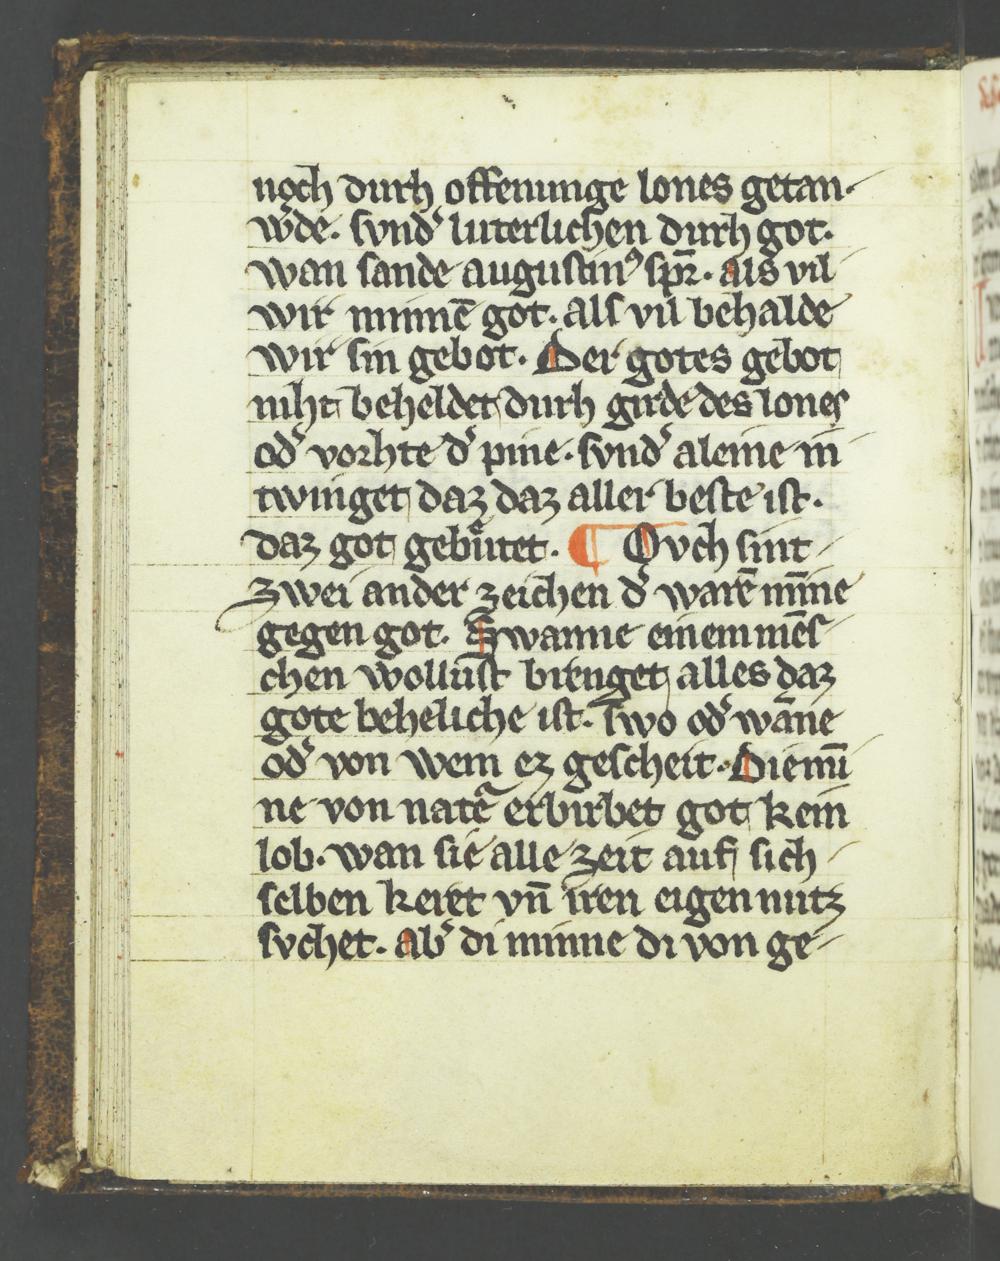 noch durh offenunge lones getan.
wͤde. svndˀ luterlichen durh got.
wan sande augustinꝰ spr̄. als vil
wir minnē got. alſ vil behalde
wir sin gebot. Der gotes gebot
niht beheldet durh girde des lones
odˀ vorhte dˀ pine. svndˀ aleine in
twinget daz daz aller beste ist.
daz got gebu̍tet. ¶ Ovch sint
zwei ander zeichen dˀ warē mīne
gegen got. Swanne einem mēſ
chen wollust brenget alles daz
gote beheliche ist. swo odˀ wāne
odˀ von wem ez gescheit. Die mī
ne von natē erbirbet got kein
lob. wan sie alle zeit auf sich
selben keret vn̄ iren eigen nutz
svchet. abˀ di minne di von ge